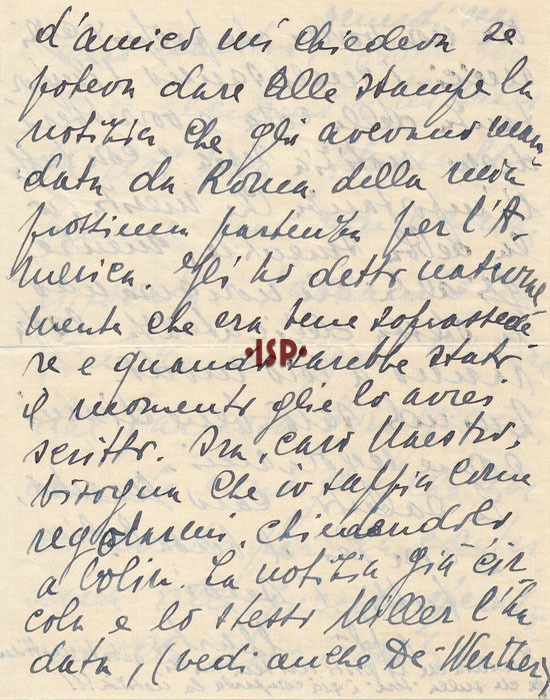 d'amico mi chiedeva se
poteva dare alle stampe la
notizia che gli avevano man
data da Roma della mia
prossima partenza per l'A-
merica. Gli ho detto natural
mente che era bene soprassede
re e quando sarebbe stato
·ISP·
il momento glie lo avrei
scritto. Ora, caro Maestro,
bisogna che io sappia come
regolarmi, chiedendolo
a Colin. La notizia già cir
cola e lo stesso Miller l'ha
data, (vedi anche De-Werther)